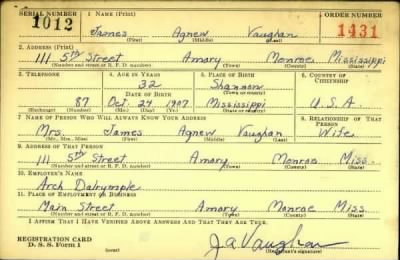 SERIAL NUMBER 1. NAME (Print) ORDER NUMBER
1012 James Agnew Vaughan 1431
(First) (Middle) (Last)
2. ADDRESS (Print)
111 5th Street Amory Monroe Mississippi
(Number and street or R. F. D. number) (Town) (County) (State)
3. TELEPHONE 4. AGE IN YEARS 5. PLACE OF BIRTH 6. COUNTRY OF CITIZENSHIP
32 Shannon
DATE OF BIRTH (Town or county)
87 Oct. 24 1907 Mississippi U.S.A.
(Exchange) (Number) (Mo.) (Day) (Yr.) (State or country)
7. NAME OF PERSON WHO WILL ALWAYS KNOW YOUR ADDRESS 8. RELATIONSHIP OF THAT PERSON
Mrs. James Agnew Vaughan Wife
(Mr., Mrs., Miss) (First) (Middle) (Last)
9. ADDRESS OF THAT PERSON
111 5th Street Amory Monroe Miss.
(Number and street or R. F. D. number) (Town) (County) (State)
10. EMPLOYER'S NAME
Arch Dalrymple
11. PLACE OF EMPLOYMENT OR BUSINESS
Main Street Amory Monroe Miss
(Number and street or R. F. D. number) (Town) (County) (State)
I AFFIRM THAT I HAVE VERIFIED ABOVE ANSWERS AND THAT THEY ARE TRUE.
REGISTRATION CARD
D. S. S. Form 1 J. A. Vaughan
(over) (Registrant's signature)